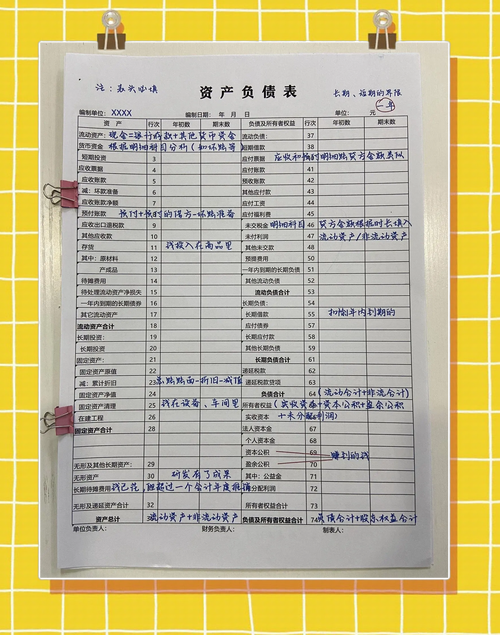 注：表头必填
资产负债表
长期、短期的界限
一年
编制单位：XXXX 编制日期： 年 月 日 单位： 元
资产 行次 年初数 期末数 负债及所有者权益 行次 年初数 期末数
流动资产： 现金=银行存款+其他货币资金 流动负债： 37
货币资金 根据明细科目分析(如坏账等 短期借款 38
短期投资 3 应付票据 应收和预付明细账贷方余额类似
应收票据 4 应付账款 41
应收账款 5 预收账款 42
减：坏款准备 6 其他应付款 43
应收账款净额 7 应付工资 44
预付账款 预付+预付的借方-坏账准备 应付福利费 45
应收出口退税款 9 未交税金 明细科目 46 贷方余额根据时长填入
其他应收款 10 未付利润 47 流动资产/非流动资产
存货 11 钱投入在商品里 其他未交款 48
其中：原材料 12 预提费用 50
产成品 13 一年内到期的长期负债 51
待摊费用 14 其他流动负债 52
待处理流动资产净损失 15 流动负债合计 53
一年内到期的长期债券 16 长期负债： 54
其它流动资产 17 长期借款 55 扣除年内到期的
流动资产合计 18 应付债券 57
长期投资： 19 长期应付款 58
长期投资 20 其他长期负债 59
固定资产： 21 长期负债合计 60
固定资产原值 22 递延税款 61
减：累计折旧 23 总账账面-折旧-减值 递延税款贷项 62
固定资产净值 24 负债合计 64 (流动合计+非流合计)
固定资产清理 25 钱在设备、车间里 所有者权益 (实收资本+资本公积+盈余公积
在建工程 26 实收资本 +未分配利润)
固定资产合计 28 法人资本金 67
个人资本金 68
资本公积 69 赚到的钱
无形及其他长期资产： 29 盈余公积 70
无形资产 30 研发有了成果 其中：公益金 71
长期待摊费用 钱已花，但超过一个会计年度摊销 未分配利润 72
无形及递延资产合计 34 所有者权益合计 73
资产总计 流动资产+非流动资产 负债及所有者权益合计 74 负债合计+股东权益合计
单位负责人： 财务负责人： 制表人：